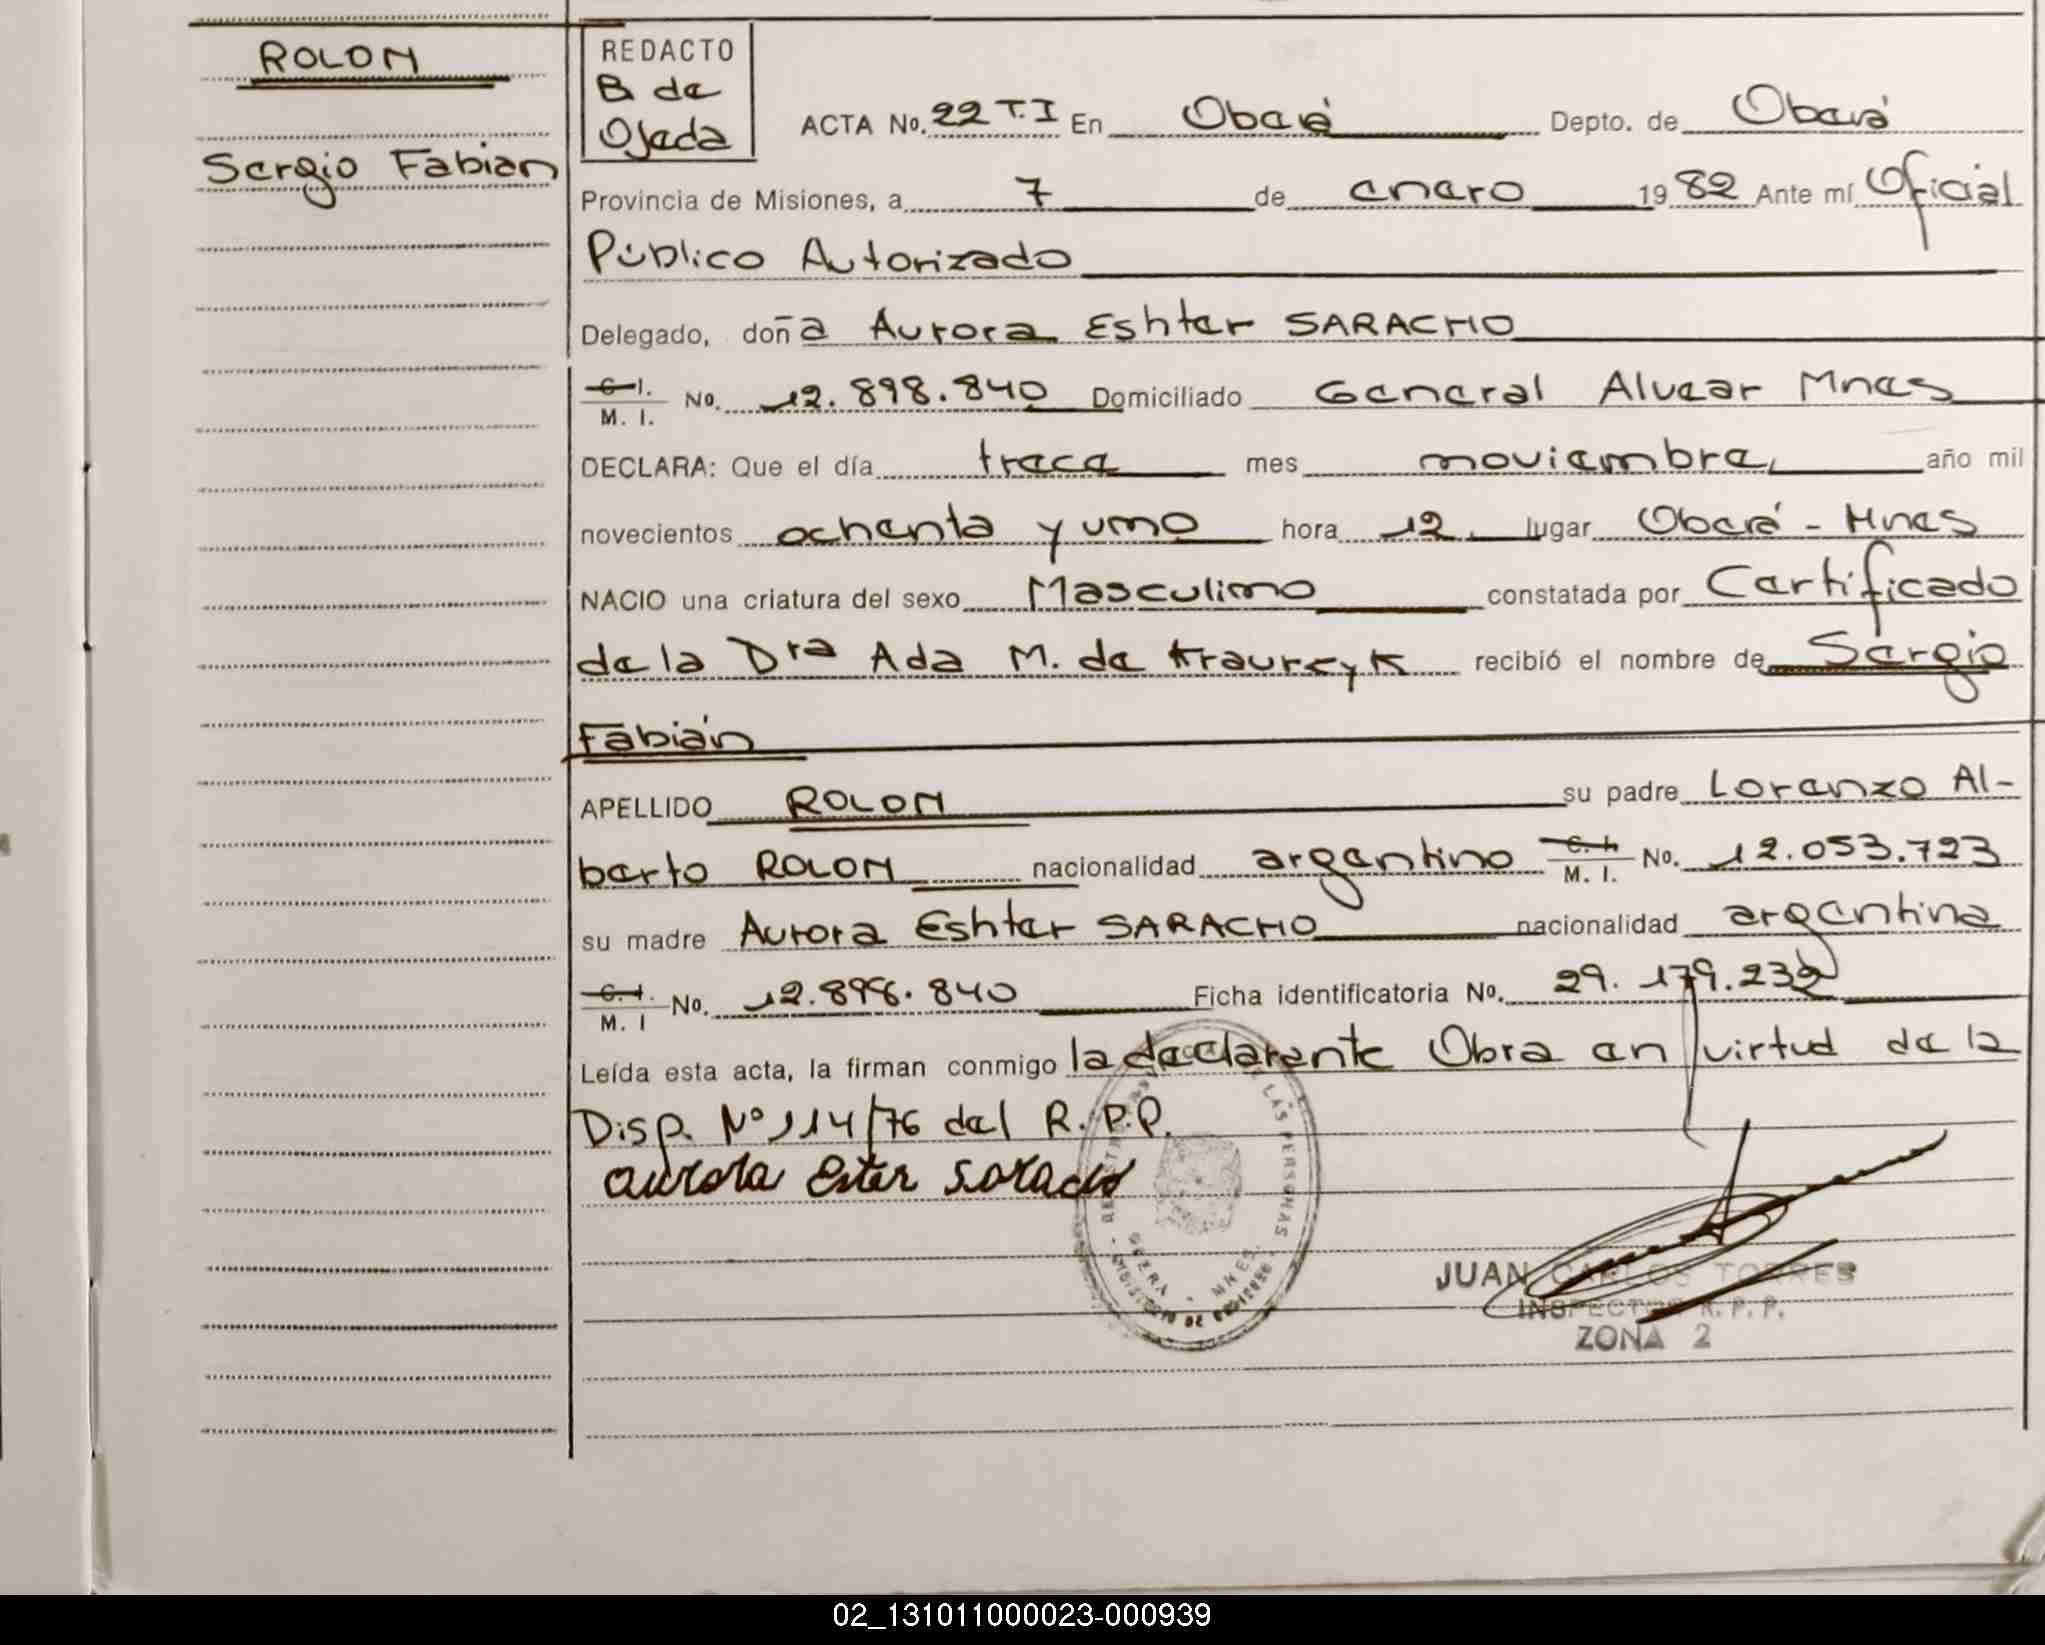 ROLON
Sergio Fabian
REDACTO
B de
Ojeda
ACTA No. 22 T.I En Oberá Depto. de Oberá
Provincia de Misiones, a 7 de enero 1982 Ante mí Oficial
Público Autorizado
Delegado, doña Aurora Eshter SARACHO
C. I.
M. I. No. 12.898.840 Domiciliado General Alvear Mnes
DECLARA: Que el día trece mes noviembre año mil
novecientos ochenta y uno hora 12 lugar Oberá - Mnes
NACIO una criatura del sexo Masculino constatada por Certificado
de la Dra Ada M. de recibió el nombre de Sergio
Fabián
APELLIDO ROLON su padre Lorenzo Al-
berto ROLON nacionalidad argentino C. I.
M. I. No. 12.053.723
su madre Aurora Eshter SARACHO nacionalidad argentina
C. I.
M. I No. 12.898.840 Ficha identificatoria No. 29.179.232
Leída esta acta, la firman conmigo la declarante Obra en virtud de la
Disp. Nº 114/76 del R.P.P.
Aurora Ester Saracho
LAS PERSONAS
OBERA - MNES.
JUAN CARLOS TORRES
INSPECTOR R. P. P.
ZONA 2
02_131011000023-000939